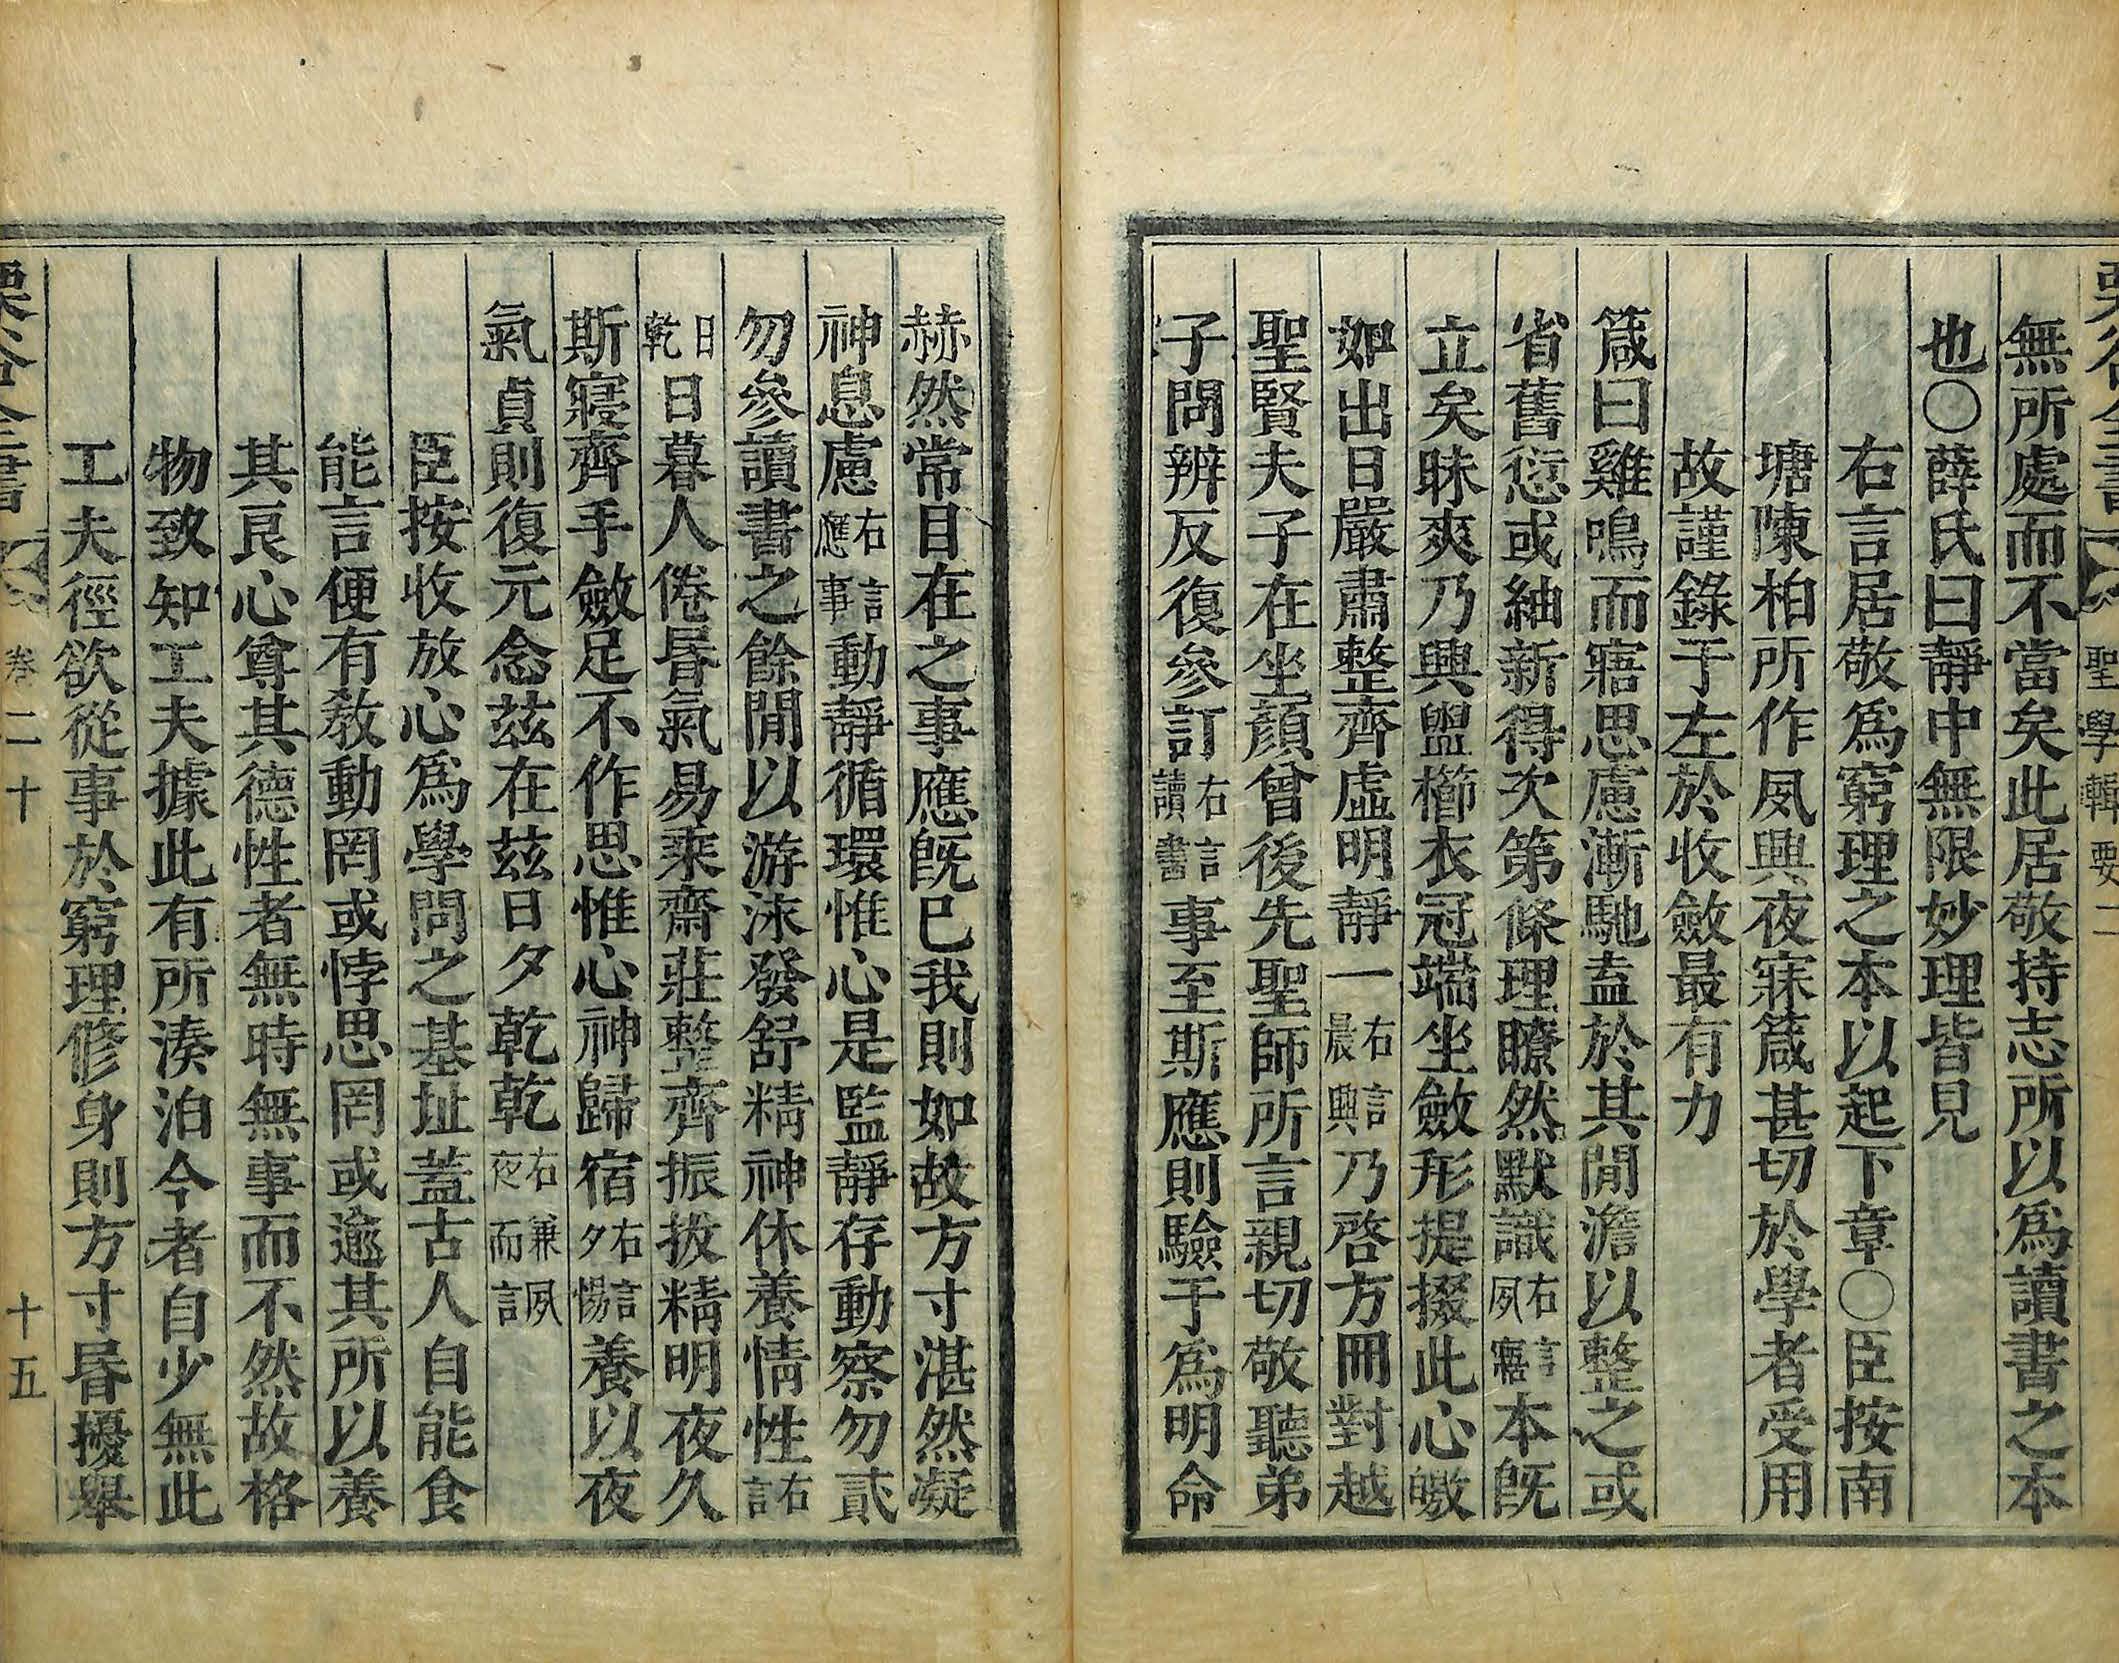 栗谷全書 聖學輯要二
無所處而不當矣此居敬持志所以爲讀書之本
也○薛氏曰靜中無限妙理皆見
右言居敬爲窮理之本以起下章○臣按南
塘陳柏所作夙興夜寐箴甚切於學者受用
故謹錄于左於收斂最有力
箴曰雞鳴而寤思慮漸馳盍於其閒澹以整之或
省舊愆或紬新得次第條理瞭然默識右言夙寤本旣
立矣昧爽乃興盥櫛衣冠端坐斂形提掇此心皦
如出日嚴肅整齊虛明靜一右言晨興乃啓方冊對越
聖賢夫子在坐顔曾後先聖師所言親切敬聽弟
子問辨反復參訂右言讀書事至斯應則驗于爲明命
赫然常目在之事應旣已我則如故方寸湛然凝
神息慮右言應事動靜循環惟心是監靜存動察勿貳
勿參讀書之餘閒以游泳發舒精神休養情性右言
日乾日暮人倦昬氣易乘齋莊整齊振拔精明夜久
斯寢齊手斂足不作思惟心神歸宿右言夕惕養以夜
氣貞則復元念茲在茲日夕乾乾右兼夙夜而言
臣按收放心爲學問之基址蓋古人自能食
能言便有敎動罔或悖思罔或逾其所以養
其良心尊其德性者無時無事而不然故格
物致知工夫據此有所湊泊今者自少無此
工夫徑欲從事於窮理修身則方寸昬擾擧
栗谷全書 卷二十 十五